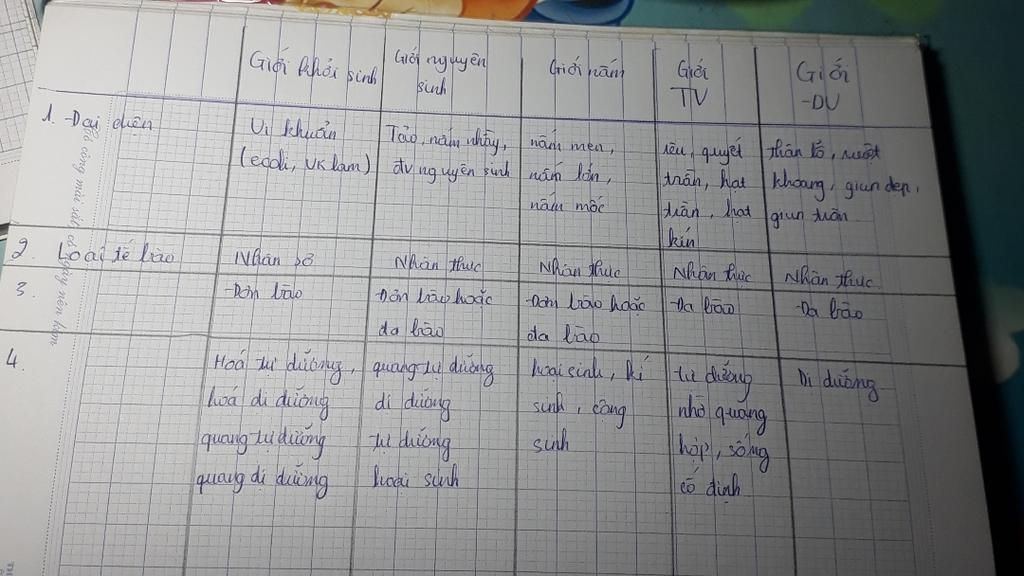 Giới khởi sinh
Giới nguyên
sinh
Giới nấm
Giới
TV
Giới
-DV
1. -Đại diện
Vi khuẩn
(ecoli, VK lam)
Tảo, nấm nhầy,
đv nguyên sinh
nấm men,
nấm lớn,
nấm mốc
rêu, quyết
trần, hạt
trần, hạt
kín
thân lỗ, ruột
khoang, giun dẹp,
giun tròn
2. Loại tế bào
Nhân sơ
Nhân thực
Nhân thực
Nhân thực
Nhân thực
3.
-Đơn bào
-Đơn bào hoặc
đa bào
-Đơn bào hoặc
đa bào
-Đa bào
-Đa bào
4.
Hoá tự dưỡng,
hoá dị dưỡng
quang tự dưỡng
quang dị dưỡng
quang tự dưỡng
dị dưỡng
tự dưỡng
hoại sinh
hoại sinh, kí
sinh, cộng
sinh
tự dưỡng
nhờ quang
hợp, sống
cố định
Dị dưỡng